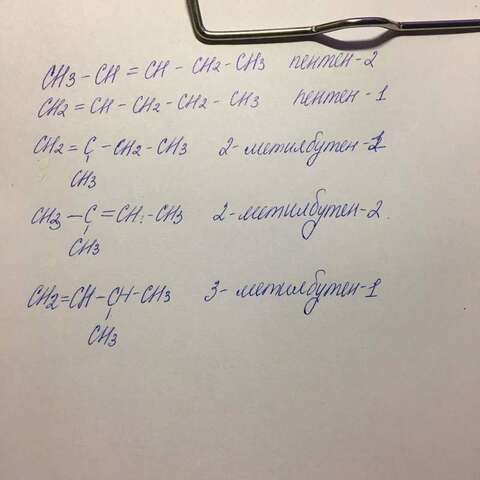 CH3 – CH = CH – CH2 – CH3 пентен-2
CH2 = CH – CH2 – CH2 – CH3 пентен-1
CH2 = C – CH2 – CH3 2-метилбутен-1
CH3
CH3 – C = CH – CH3 2-метилбутен-2.
CH3
CH2=CH – CH – CH3 3-метилбутен-1
CH3